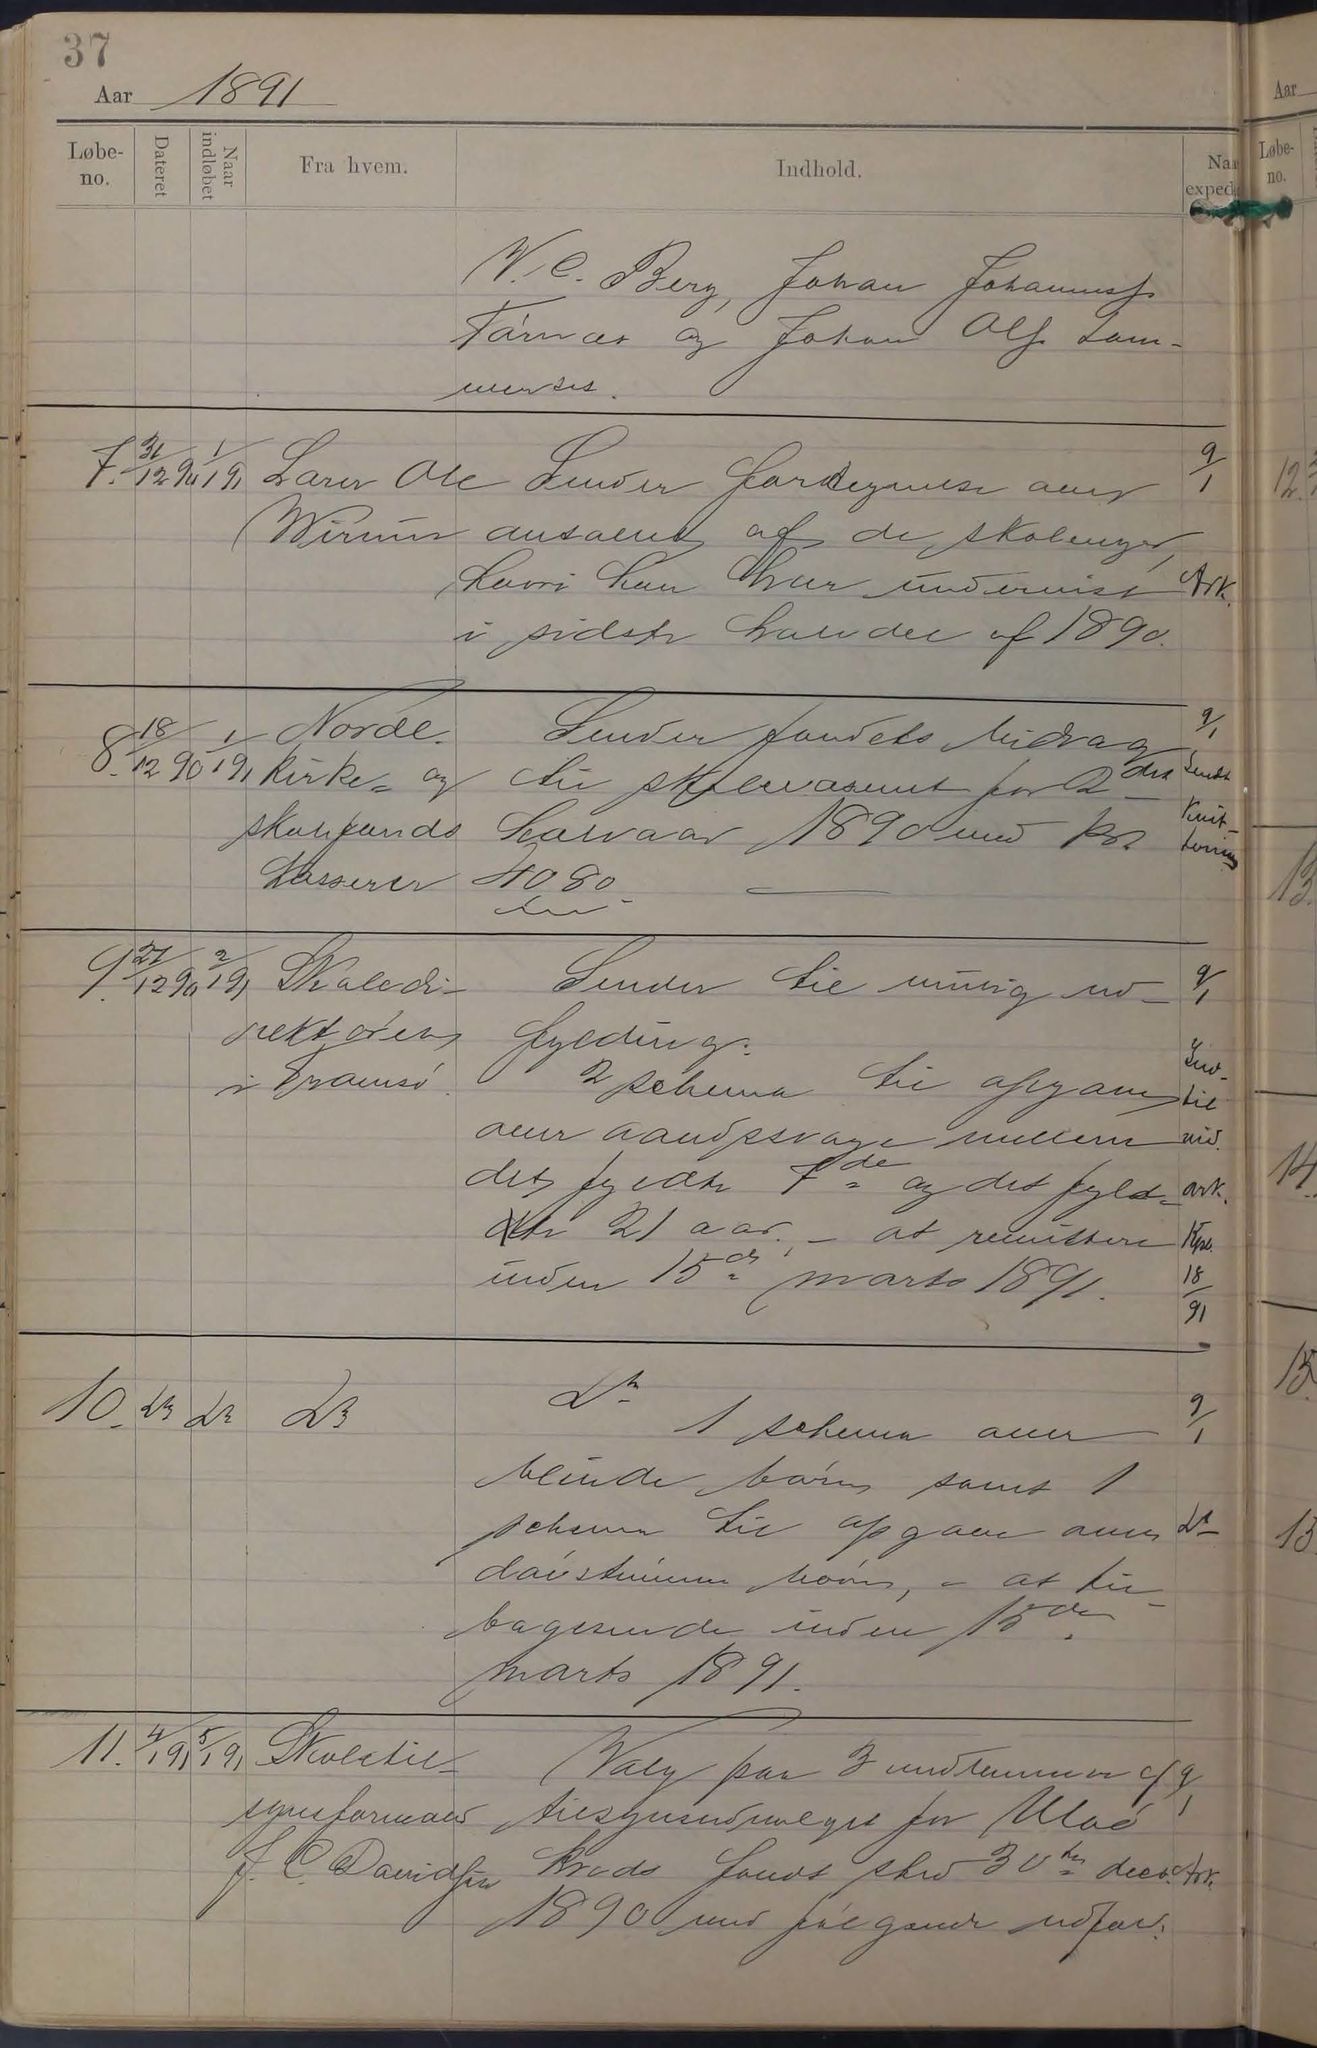 37
Aar 1891
Løbe-no. Dateret Naar indløbet Fra hvem. Indhold. Naar exped
N. C. Berg, Johan Johannesf.
og Johan Olf. Lom-
7. 31/12 90 1/1 91 Lærer Ole Sender fortegnelse over 9/1
Wirum antallet af de skoleuger,
hvori han har undervist Ark.
i sidste halvdel af 1890.
8. 18/12 90 1/1 91 Nordl. Sender fondets bidrag 9/1
kirke- og til skolevæsenet for 2det Sendt
skolefonds halvaar 1890 med kr. Kvit-
kasserer 40 80 tering
9. 27/12 90 2/1 91 Skoledi- Sender til minig ud- 9/1
rektøren fylding:
i Tromsø. 2 schema til opgave
over aandssvage mellem
det fyldte 7de og det fyld- ark.
te 21 aar, – at remittere
inden 15de marts 1891. 18/91
10. Do Do Do Do
1 schema over 9/1
blinde børn samt 1
schema til opgave over Do
døvstumme børn, – at til-
bagesende inden 15de
marts 1891.
11. 4/1 91 5/1 91 Skoletil- Valg paa 3 medlemmer af 9/1
synsformand tilsynsudvalget for Uløø
J. C. Davidsen kreds fandt sted 30te decb. Ark.
1890 med følgende udfald:
Aar
Løbe-no.
12.
13.
14.
15.